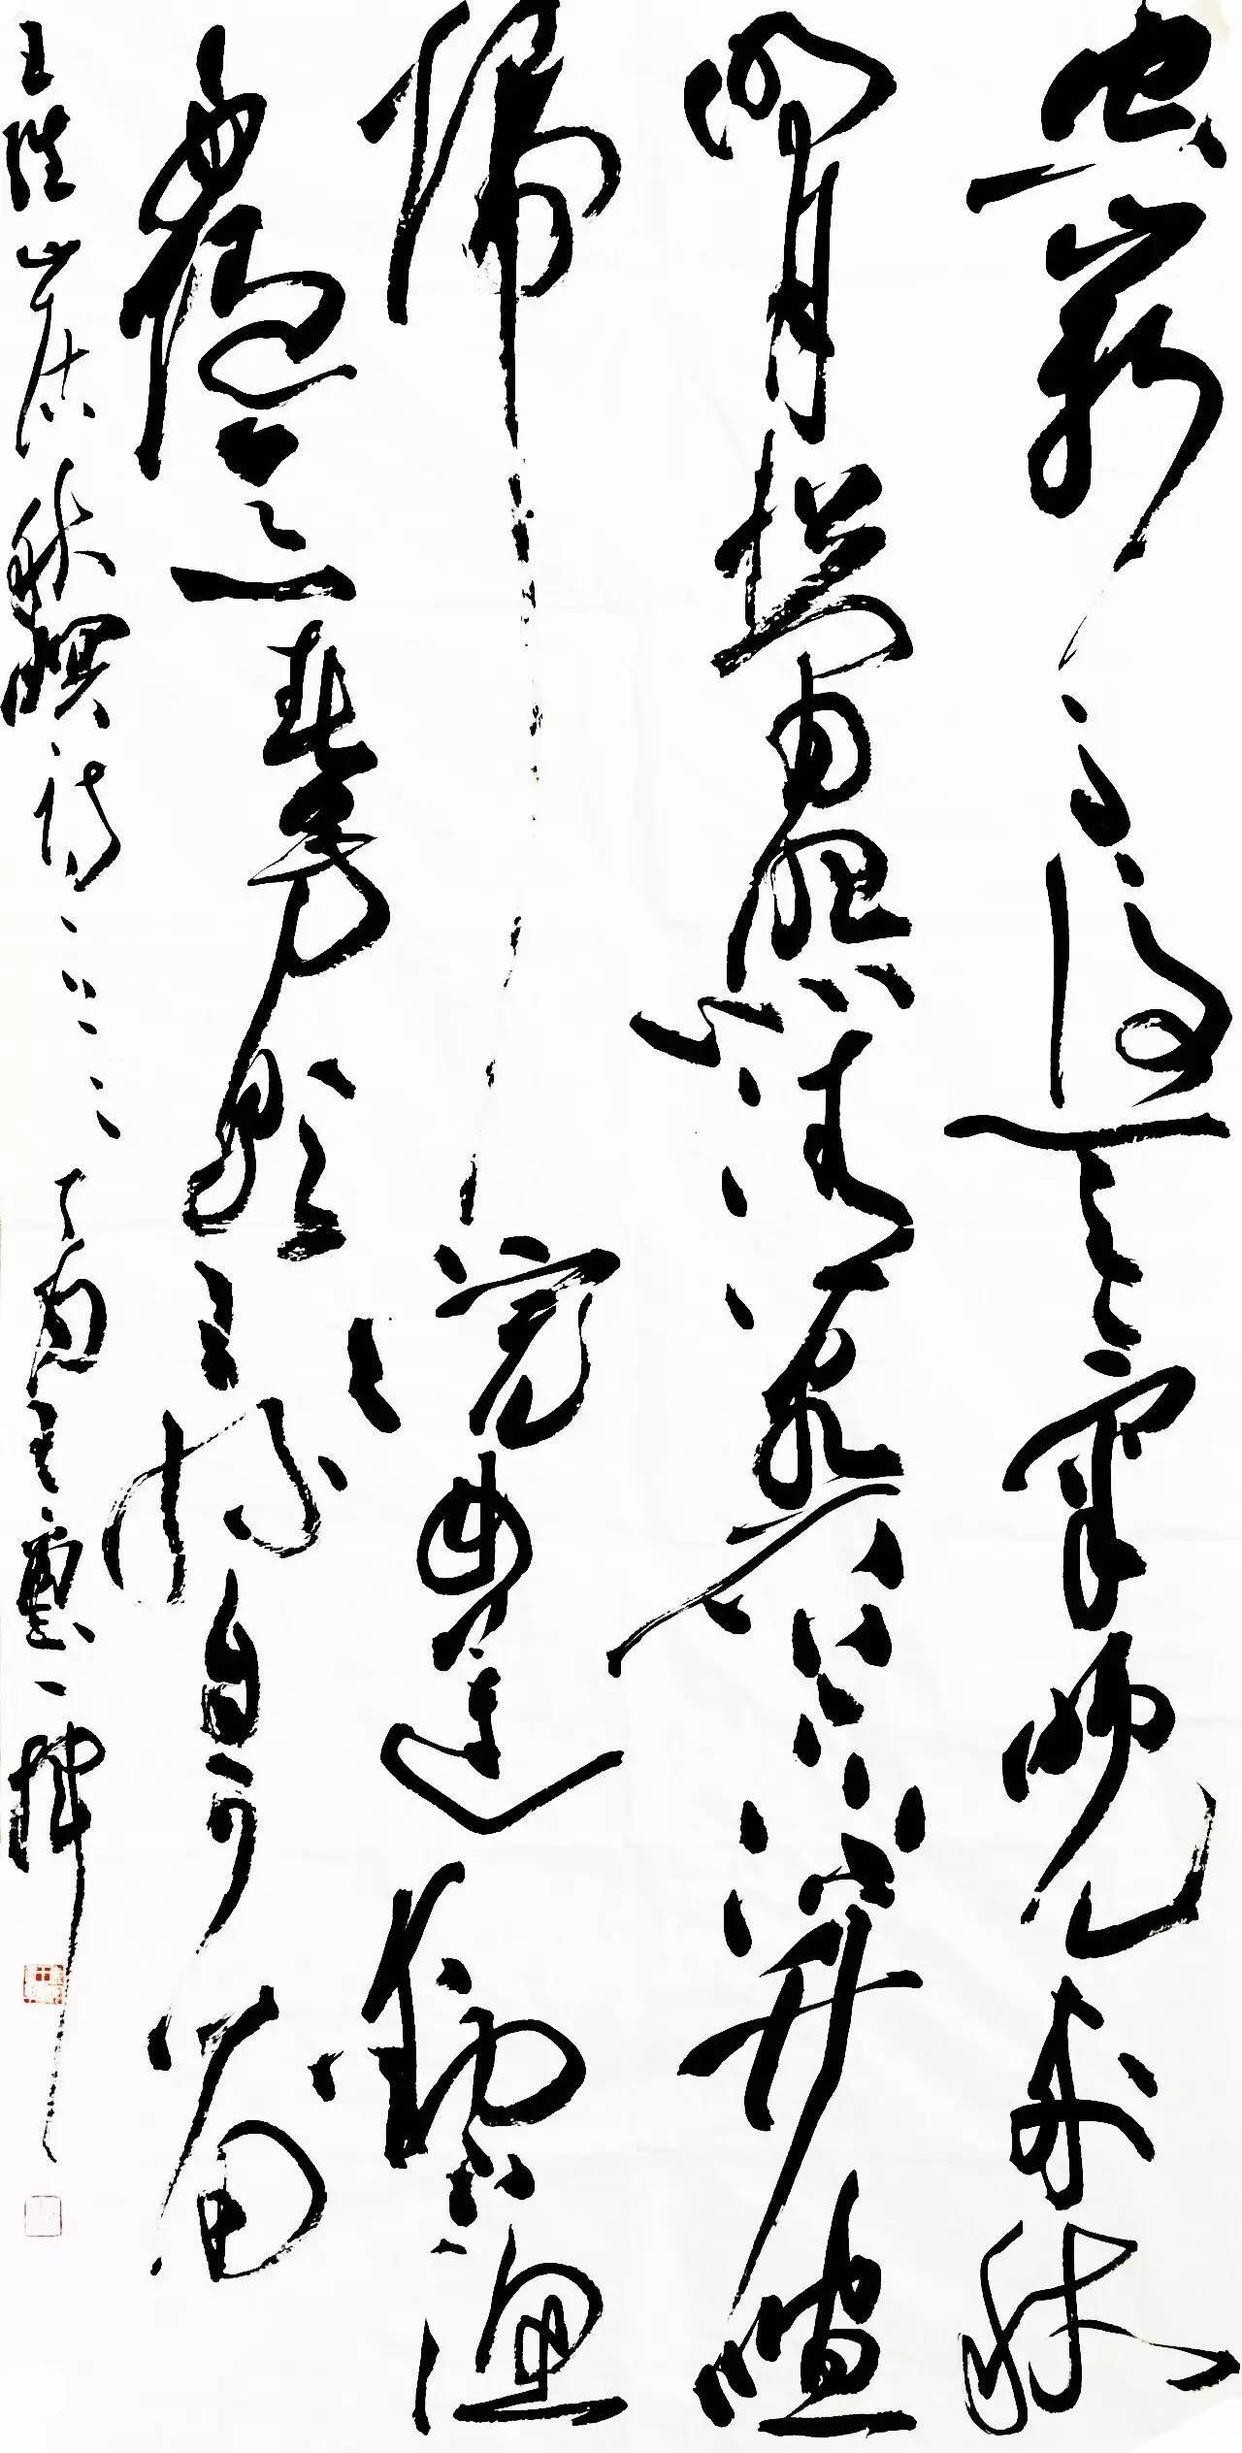 空山新雨後天氣晚来秋
明月松間照清泉石上流竹喧
歸浣女蓮動下漁
舟隨意春芳歇王孫自可留
王維山居秋暝詩